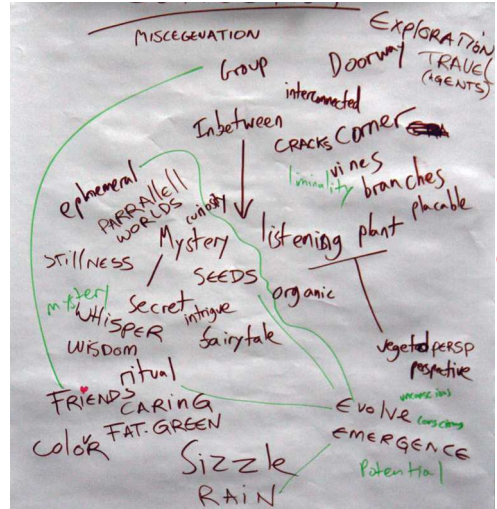 MISCEGENATION
EXPLORATION
TRAVEL
(AGENTS)
Group
Doorway
interconnected
Inbetween
CRACKS
Corner
vines
liminality
branches
placable
ephemeral
PARRALLELL
WORLDS
curiosity
Mystery
listening plant
STILLNESS
SEEDS
organic
mystery
Secret
WHISPER
intrigue
fairytale
WISDOM
ritual
PERSP
perspective
FRIENDS
CARING
FAT.GREEN
COLOR
unconscious
EVOLVE
conscious
EMERGENCE
Potential
Sizzle
RAIN